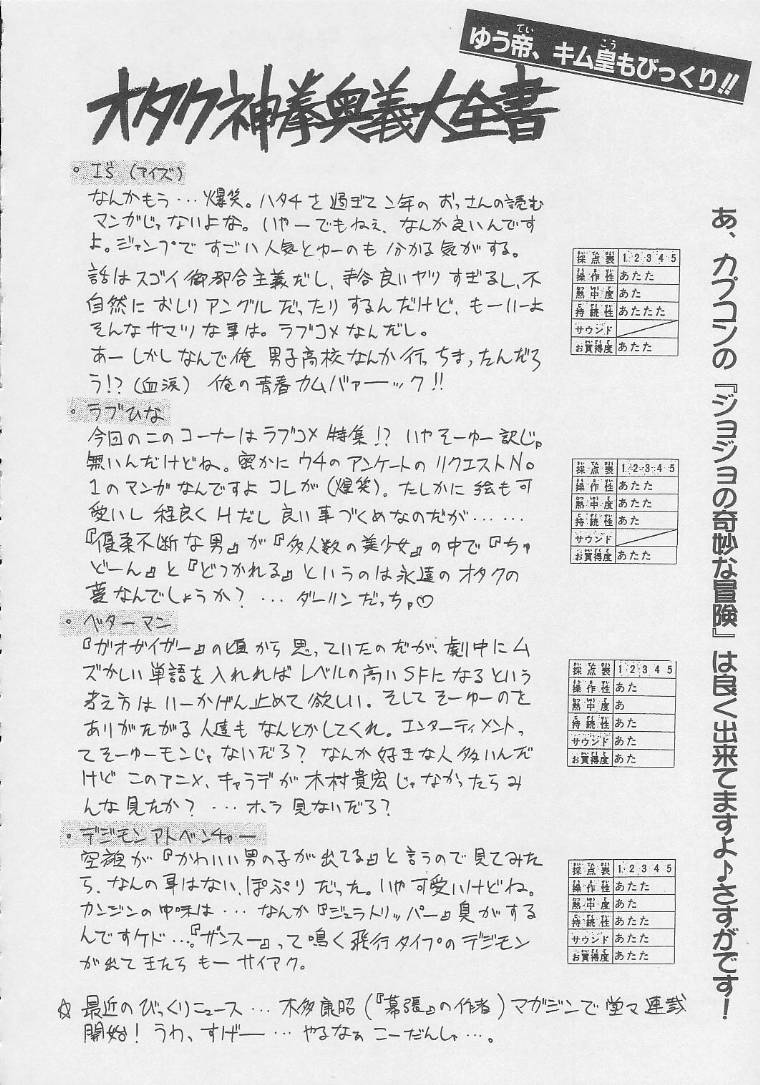 ゆう帝、キム皇もびっくり!!
オタク神拳奥義大全書
・I's (アイズ)
なんかもう…爆笑。ハタチを過ぎて二年のおっさんの読む
マンガじゃないよな。いやーでもねぇ、なんか良いんです
よ。ジャンプですごい人気とゆーのも分かる気がする。
話はスゴイ御都合主義だし、手谷良いヤツすぎるし、不
自然におしりアングルだったりするんだけど、もーいーよ
そんなサマツな事は。ラブコメなんだし。
あーしかしなんで俺 男子高校なんか行っちまったんだろ
う!?(血涙) 俺の青春カムバァーーック!!
採点表 1 2 3 4 5
操作性 あたた
熱中度 あた
持続性 あたたた
サウンド
お買得度 あたた
・ラブひな
今回のこのコーナーはラブコメ特集!? いやそーゆー訳じゃ
無いんだけどね。密かにウチのアンケートのリクエストNo
1のマンガなんですよコレが(爆笑)。たしかに絵も可
愛いし 程良くHだし良い事づくめなのだが……
『優柔不断な男』が『多人数の美少女』の中で『ちゅ
どーん』と『どつかれる』というのは永遠のオタクの
夢なんでしょうか?…ダーリンだっちゃ♡
採点表 1 2 3 4 5
操作性 あたた
熱中度 あたた
持続性 あた
サウンド
お買得度 あたた
・ベターマン
『ガオガイガー』の頃から思っていたのだが、劇中にム
ズかしい単語を入れればレベルの高いSFになるという
考え方はいーかげん止めて欲しい。そしてそーゆーのを
ありがたがる人達もなんとかしてくれ。エンターティメントっ
てそーゆーモンじゃないだろ?なんか好きな人多いんだ
けど このアニメ、キャラデが木村貴宏じゃなかったらみ
んな見たか?…ホラ見ないだろ?
採点表 1 2 3 4 5
操作性 あた
熱中度 あ
持続性 あた
サウンド あた
お買得度 あた
・デジモンアドベンチャー
空雅が『かわいい男の子が出てる』と言うので見てみた
ら、なんの事はない、ぽぷりだった。いや可愛いけどね。
カンジンの中味は…なんか『ジュラトリッパー』臭がする
んですケド…。『ザンスー』って鳴く飛行タイプのデジモン
が出てきたらもーサイアク。
採点表 1 2 3 4 5
操作性 あたた
熱中度 あた
持続性 あたた
サウンド あたた
お買得度 あたた
☆ 最近のびっくりニュース…木多康昭(『幕張』の作者)マガジンで堂々連載
開始!うわ、すげー…やるなぁこーだんしゃ…。
あ、カプコンの『ジョジョの奇妙な冒険』は良く出来てますよ♪さすがです!